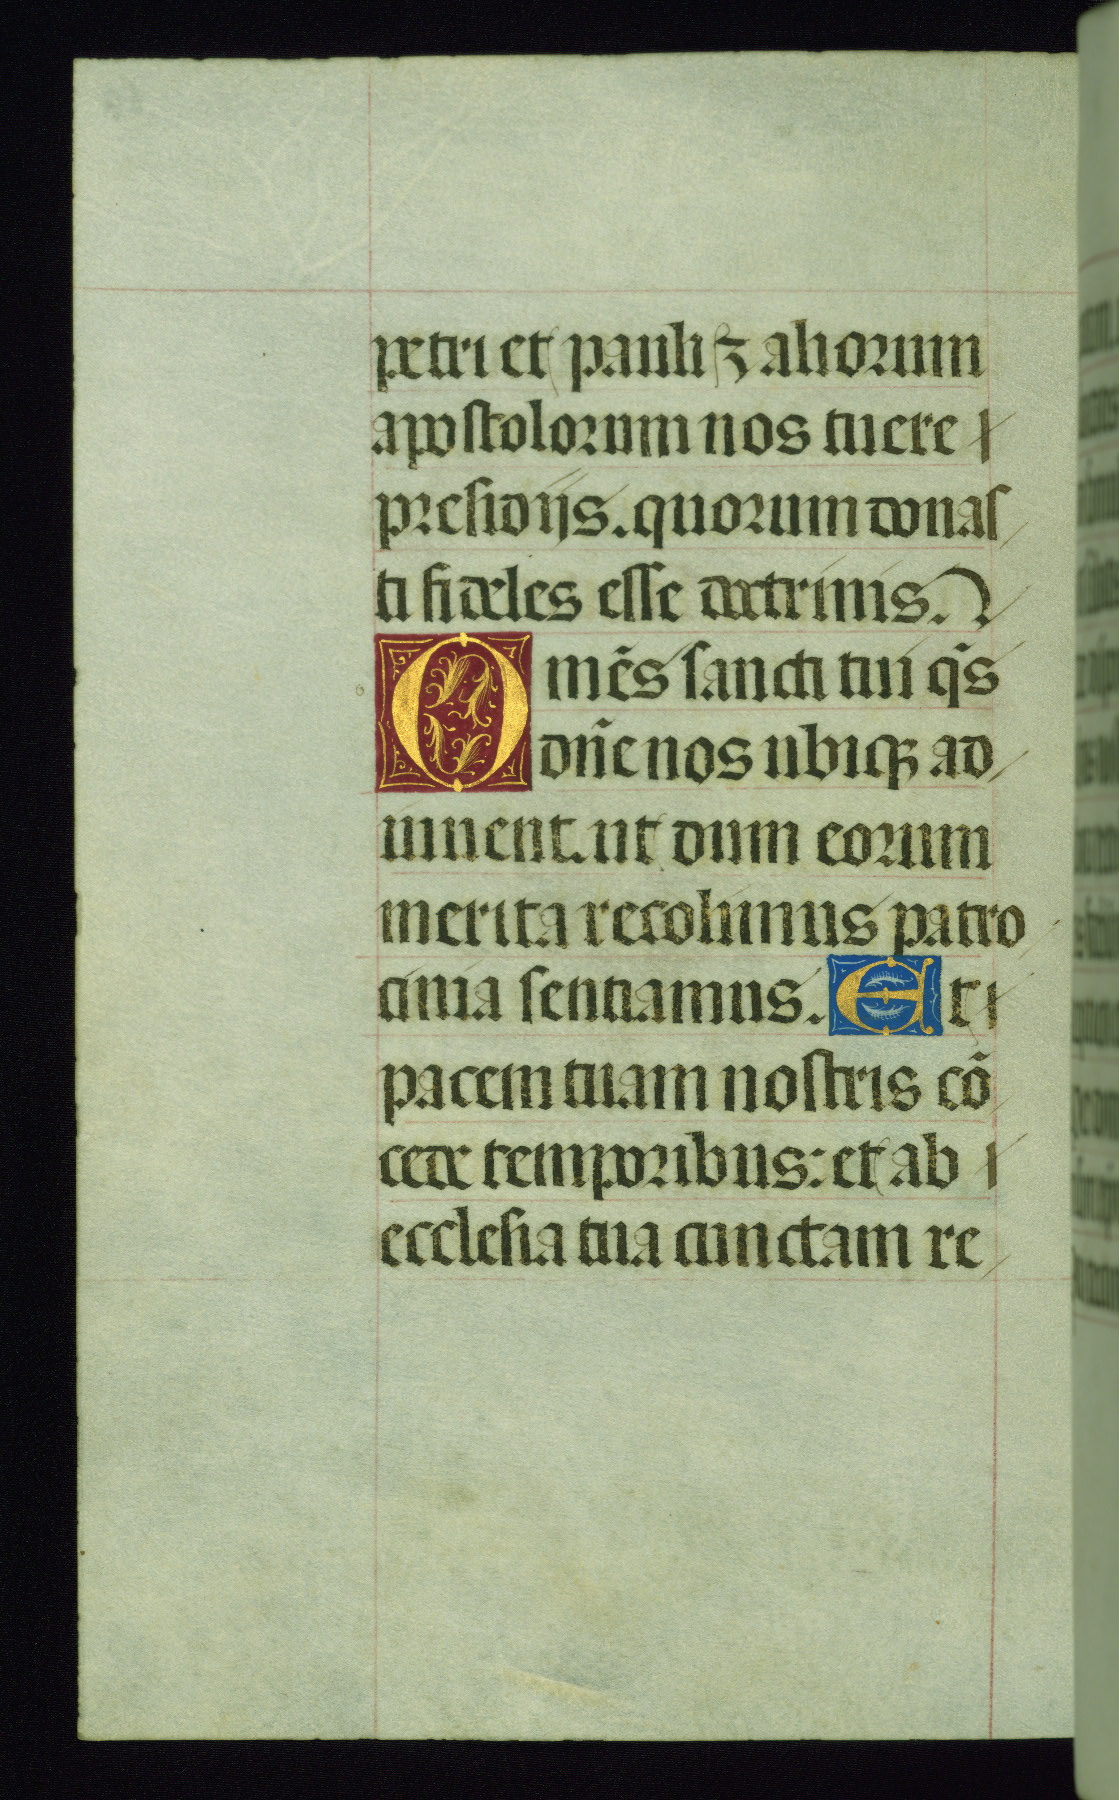 petri et pauli ⁊ aliorum
apostolorum nos tuere
presidijs. quorum donas
ti fideles esse doctrinis.
Omēs sancti tui qs̄
dn̄e nos ubiqꝫ ad
iuuent. ut dum eorum
merita recolimus patro
cinia sentiamus. Et
pacem tuam nostris cō
cede temporibus: et ab
ecclesia tua cunctam re